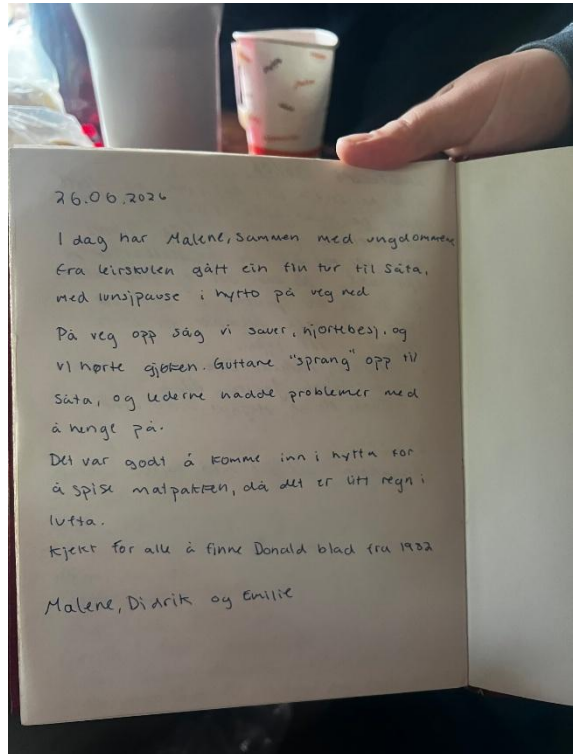 26.06.2026
I dag har Malene, sammen med ungdommene
fra leirskulen gått ein fin tur til Såta,
med lunsjpause i hytto på veg ned
På veg opp såg vi sauer, hjortebesj, og
vi hørte gjøken. Guttane "sprang" opp til
Såta, og lederne hadde problemer med
å henge på.
Det var godt å komme inn i hytta for
å spise matpakken, då det er litt regn i
lufta.
Kjekt for alle å finne Donald blad fra 1982
Malene, Didrik og Emilie